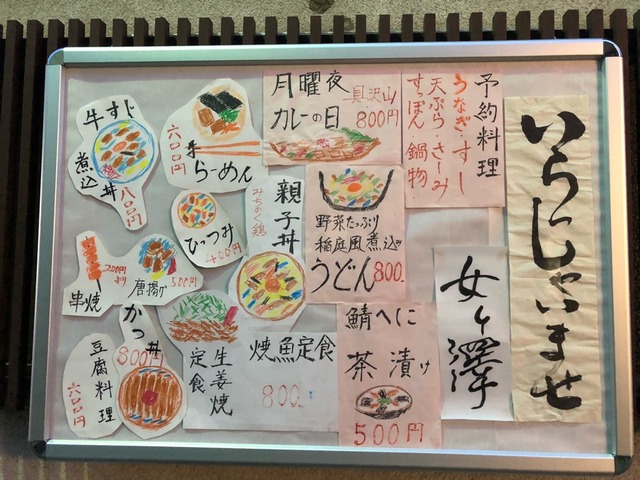 いらっしゃいませ
女ヶ澤
予約料理
うなぎ・すし
天ぷら・さしみ
すっぽん 鍋物
月曜夜
カレーの日
具沢山
800円
野菜たっぷり
稲庭風煮込
うどん 800.
鯖へしこ
茶漬け
500円
親子丼
みちのく鶏
焼魚定食
800.
生姜焼
定食
らーめん
六〇〇円
牛すじ
煮込丼
八〇〇円
ひっつみ
400円
唐揚げ
500円
串焼
200円
かつ丼
800円
豆腐料理
六〇〇円